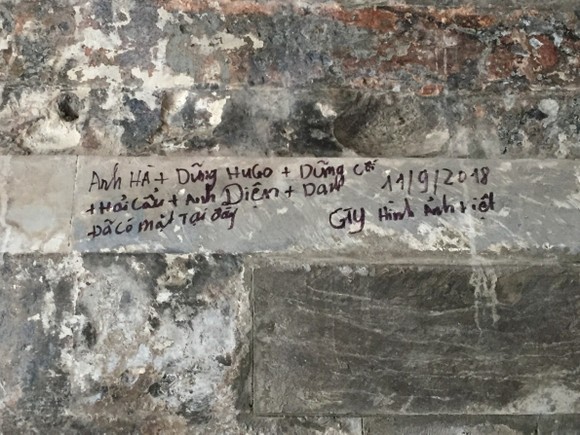 Anh HÀ + DŨng HuGo + DŨng Cối
+ Hải Cẩu + Anh Diện + Dan
Đã Có mặt Tại đây
11/9/2018
CTY Hình Ảnh Việt